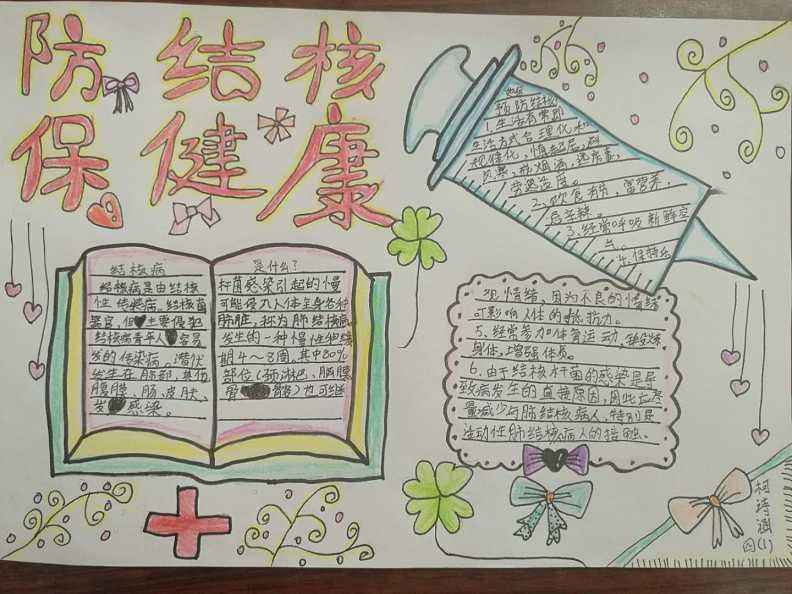 防结核
保健康
结核病
结核病是由结核
性传染病。结核菌
器官,但主要侵犯
结核病青年人容易
发的传染病。潜伏
发生在肺部,其他
腹膜、肠、皮肤、
发感染。
是什么?
杆菌感染引起的慢
可能侵入人体全身各种
肺脏,称为肺结核病
发生的一种慢性
期4~8周,其中80%
部位(颈淋巴、脑膜
骨骼)也可继
预防结核
1.生活有常即
生活方式合理化和
规律化,慎起居,避
风寒,戒烟酒,远房事,
劳逸适度。
2.饮食有节,富营养,
忌辛辣。
3.经常呼吸新鲜空
气。
4.保持乐
观情绪,因为不良的情绪
可影响人体的抵抗力。
5.经常参加体育运动,锻炼
身体,增强体质。
6.由于结核杆菌的感染是导
致病发生的直接原因,因此应尽
量减少与肺结核病人,特别是
活动性肺结核病人的接触。
柯诗涵
四(1)